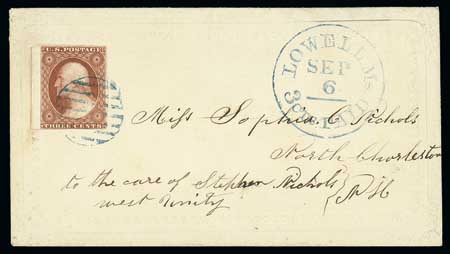 U.S. POSTAGE
THREE CENTS
LOWELL Ms.
SEP
6
3cts. PAID
Miss Sophia C Nichols
North Charleston
to the care of Stephen Nichols } NH
west Unity